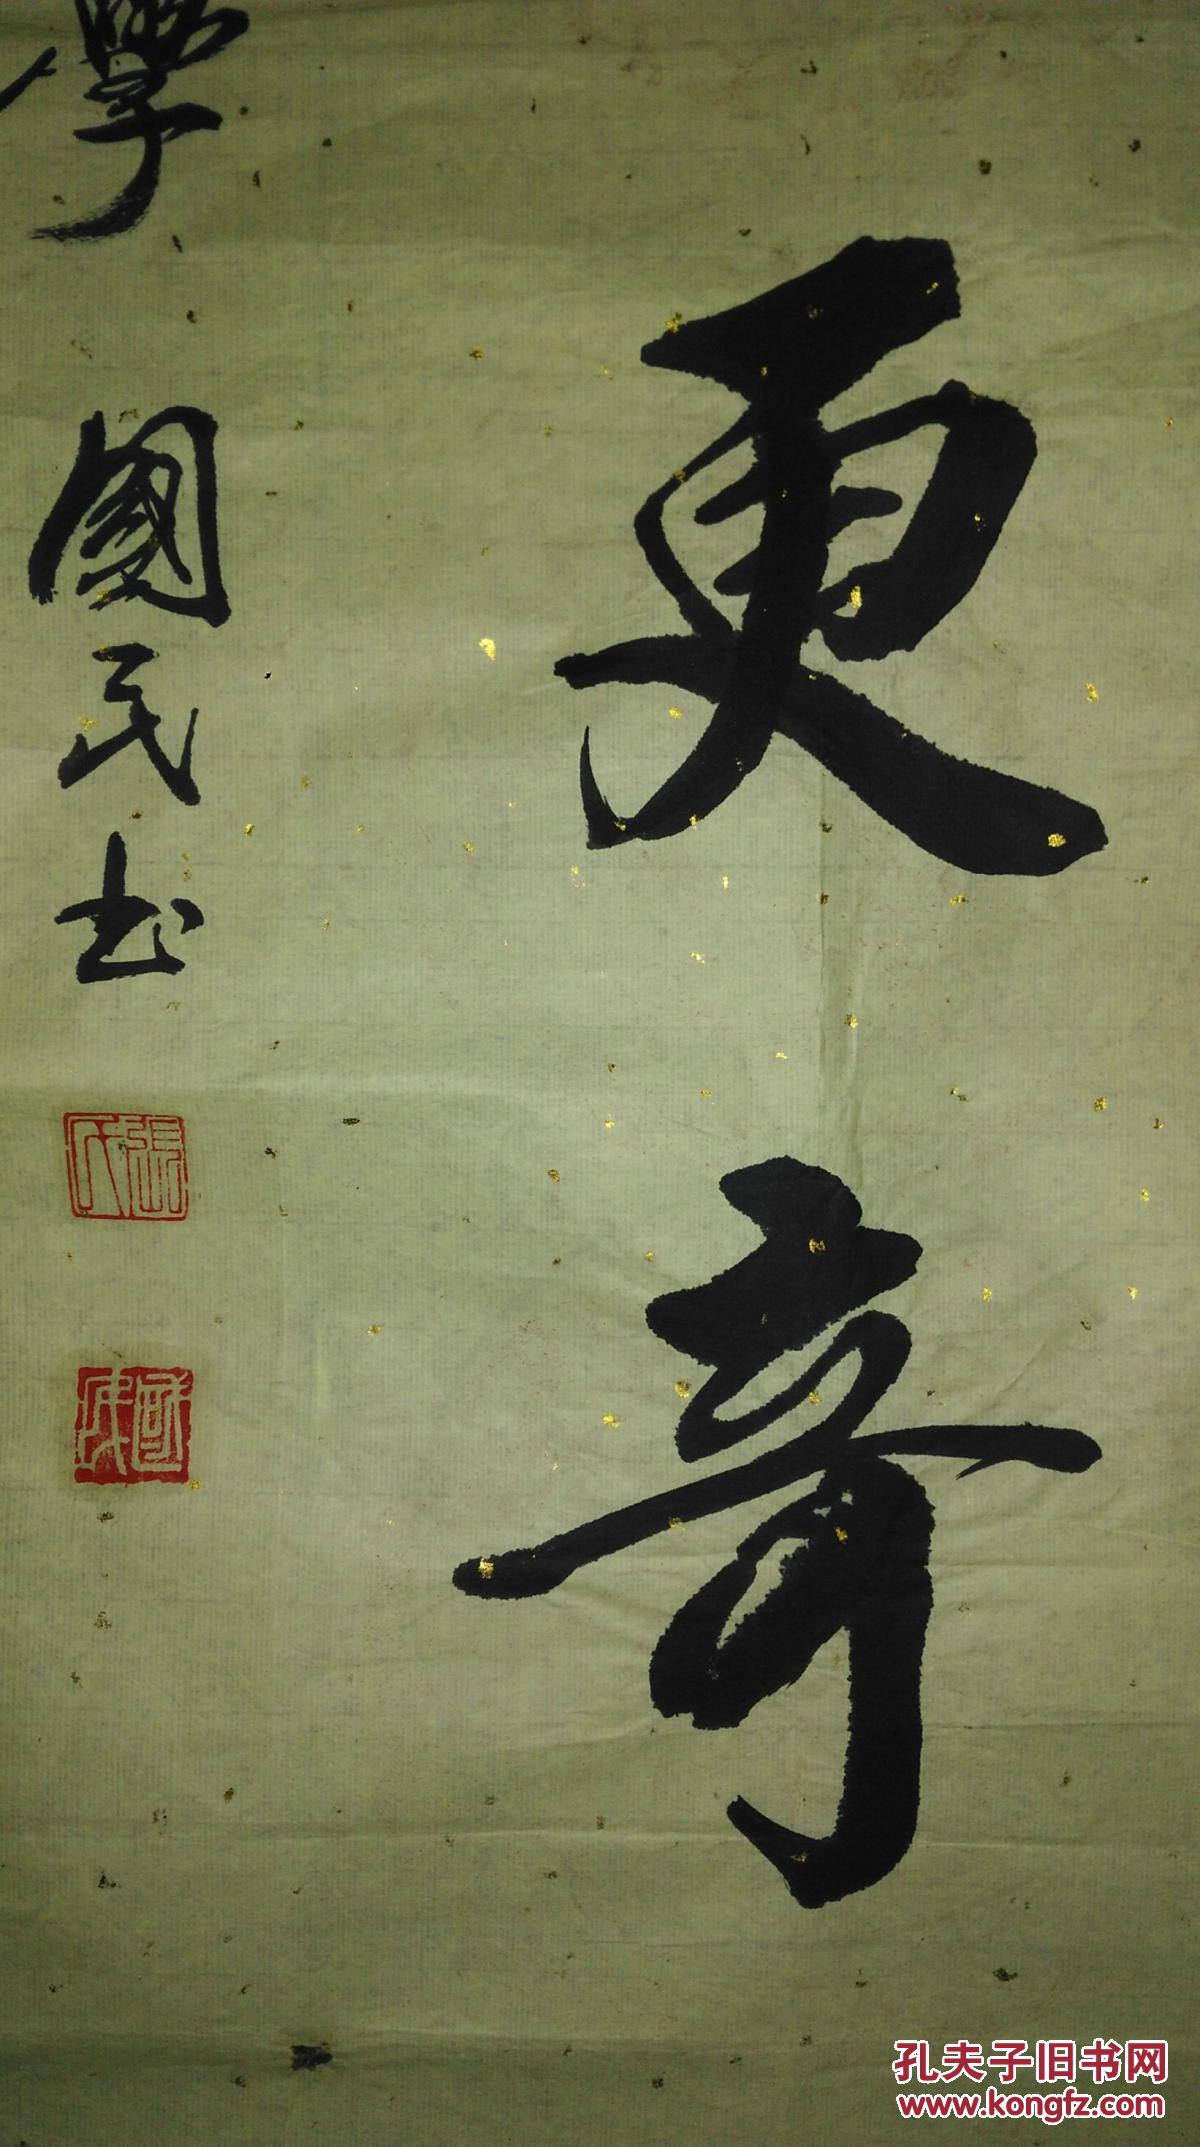 更奇
學 國民书
孔夫子旧书网
www.kongfz.com